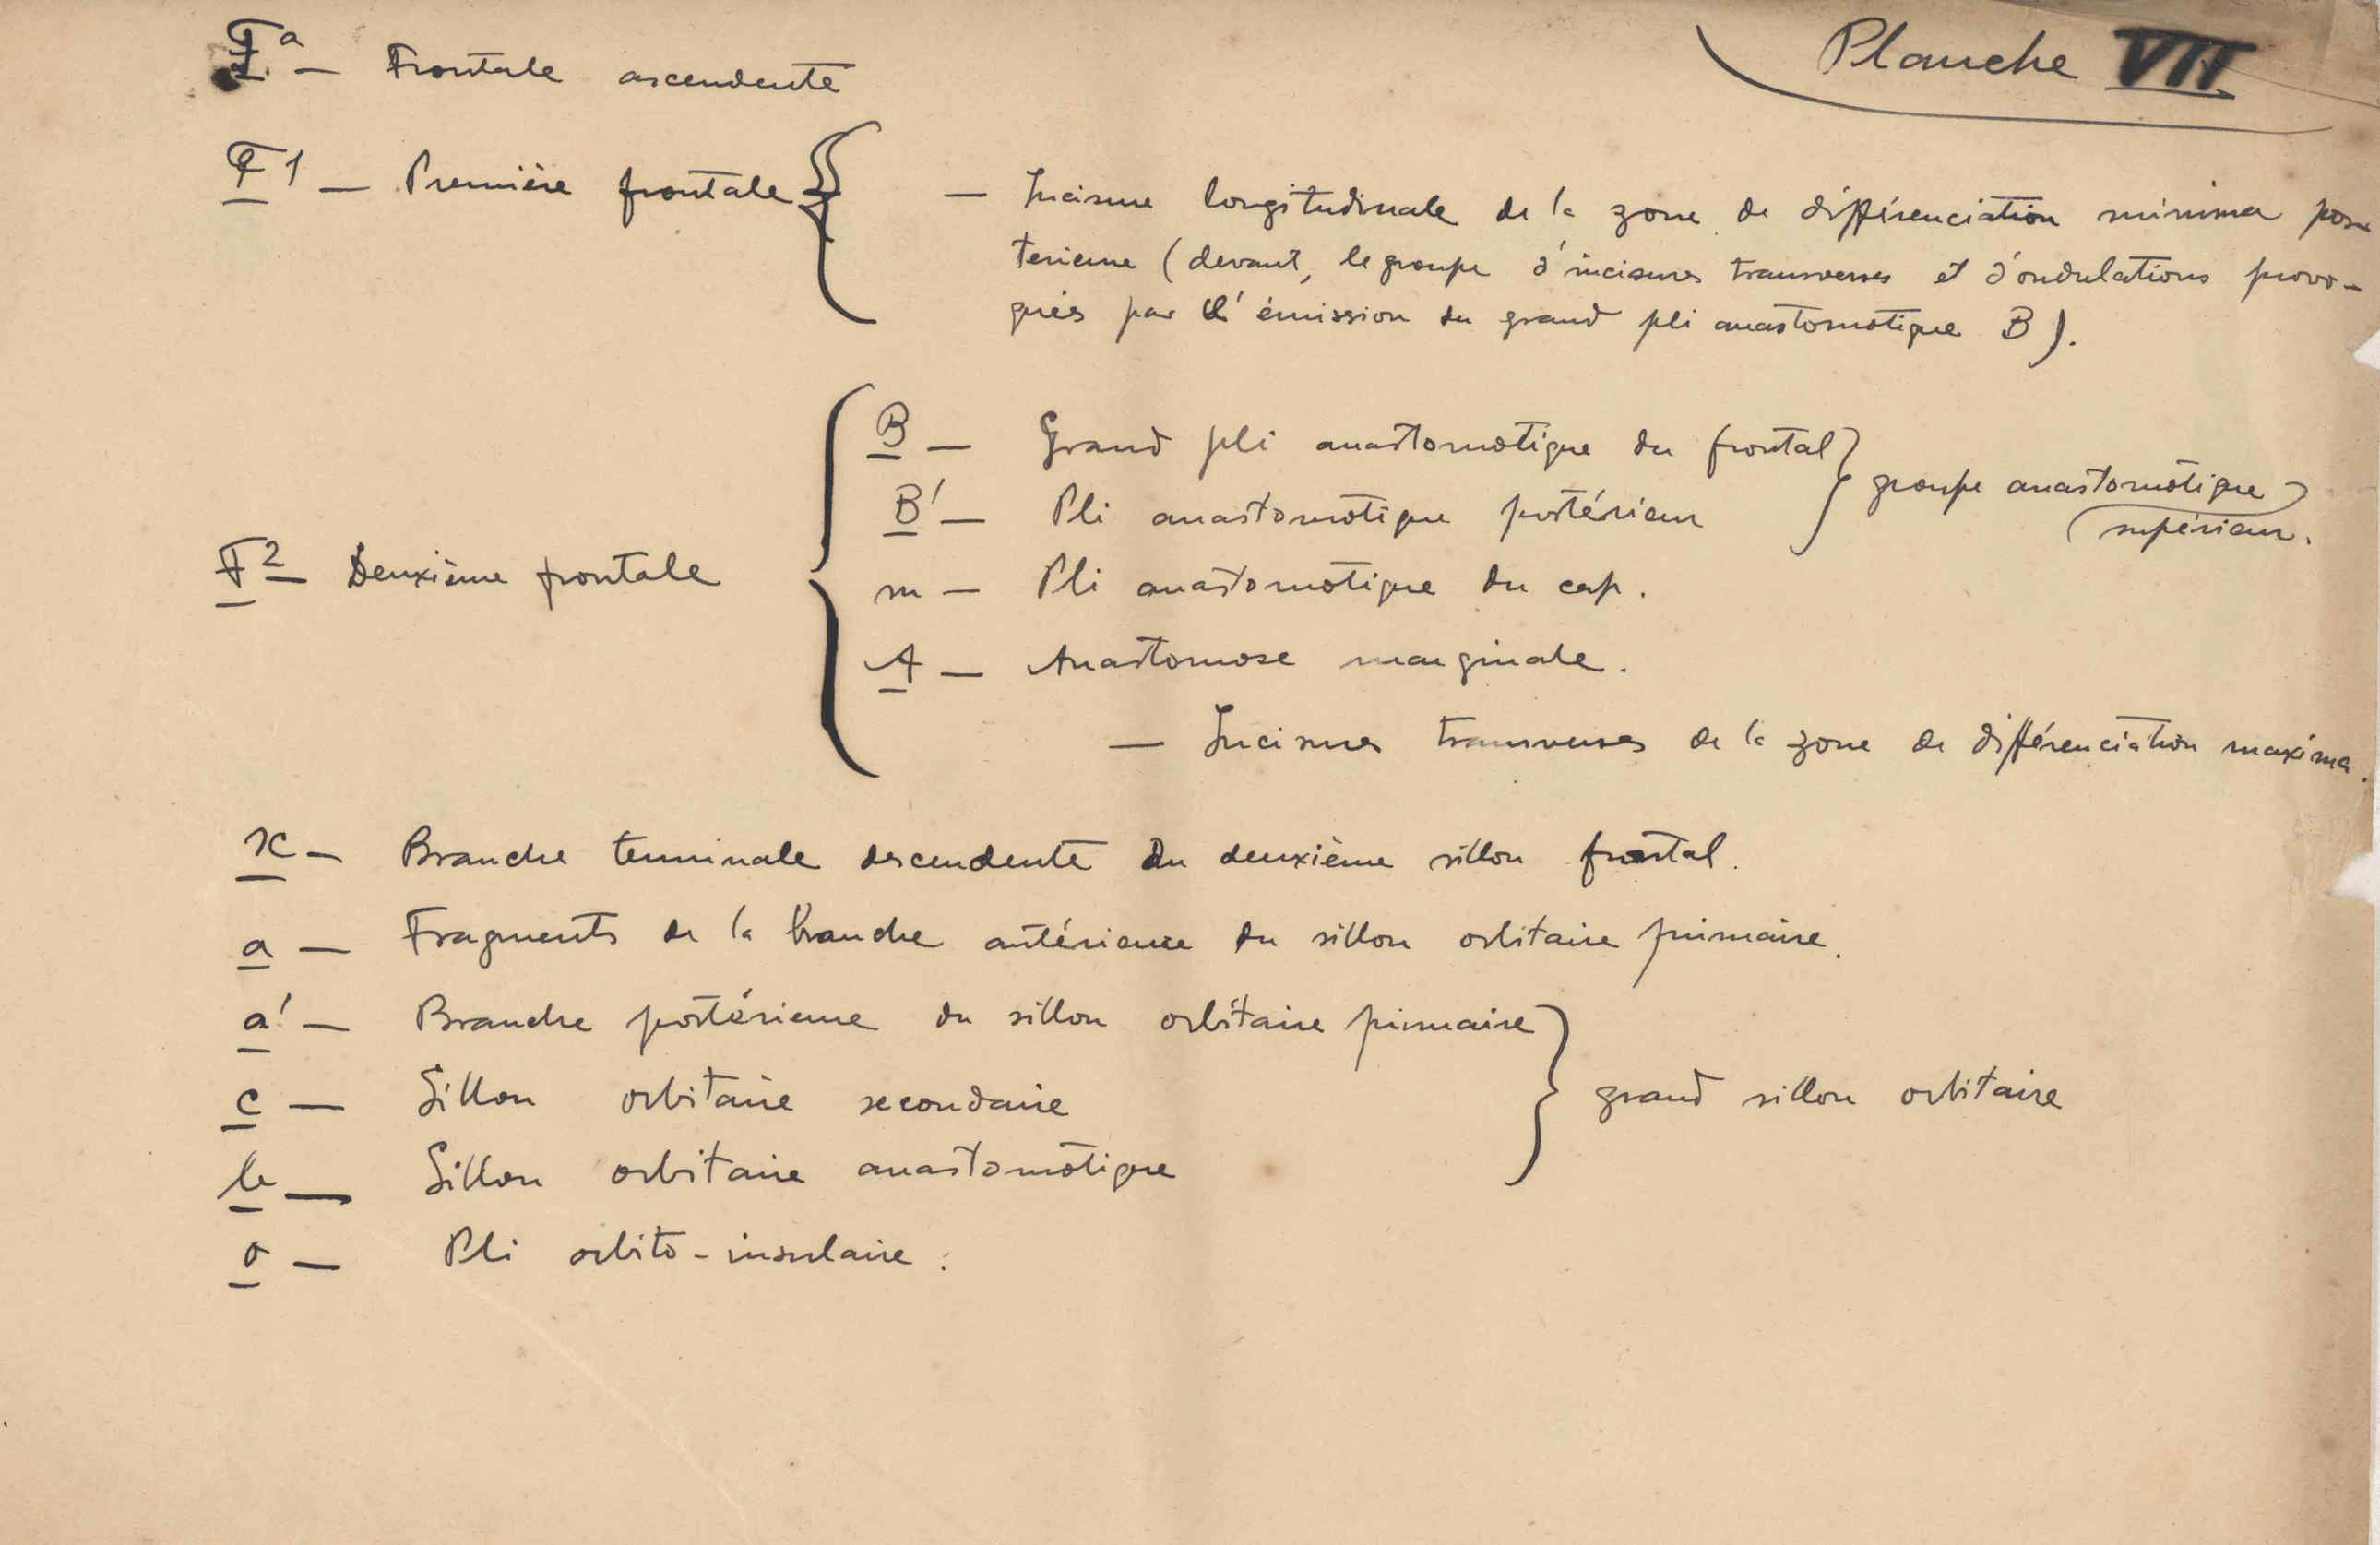 Planche VII
Fa — Frontale ascendente
F1 — Première frontale { — Incisure longitudinale de la zone de différenciation minima pos-
terieure (devant, le groupe d'incisures transverses et d'ondulations provo-
qués par l'émission du grand pli anastomotique B).
B — Grand pli anastomotique du frontal
B' — Pli anastomotique postérieur } groupe anastomotique
supérieur.
F2 — Deuxième frontale { m — Pli anastomotique du cap.
A — Anastomose marginale.
— Incisures transverses de la zone de différenciation maxima.
x — Branche terminale descendente du deuxième sillon frontal.
a — Fragments de la branche antérieure du sillon orbitaire primaire.
a' — Branche postérieure du sillon orbitaire primaire
c — Sillon orbitaire secondaire } grand sillon orbitaire
b — Sillon orbitaire anastomotique
o — Pli orbito-insulaire.